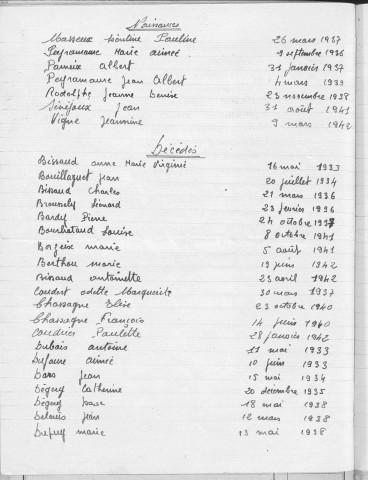 Naissances
Masseux Léontine Pauline 26 mars 1937
Peyramaure Marie aimée 9 septembre 1936
Pameix Albert 31 janvier 1937
Peyramaure Jean Albert 4 mars 1933
Rodolphe Jeanne Denise 23 novembre 1938
Sénéjoux Jean 31 août 1941
Vigne Jeannine 9 mars 1942
Décédés
Bissaud anne Marie Virginie 16 mai 1933
Bouillaguet Jean 20 juillet 1934
Bissaud Charles 21 mars 1936
Brousely Léonard 23 février 1936
Bardy Pierre 24 octobre 1937
Bourliataud Louise 8 octobre 1941
Borzeix marie 5 août 1941
Berthou marie 19 juin 1942
Bissaud antoinette 23 avril 1942
Coudert odette Marguerite 30 mars 1937
Chassagne Elise 23 octobre 1940
Chassagne François 14 juin 1940
Coudrier Paulette 28 janvier 1942
Dubois antoine 11 mai 1933
Dufaure aimée 10 juin 1933
Dars Jean 15 mai 1934
Dégery Catherine 20 décembre 1935
Dégery 18 mai 1938
Delouis Jean 12 mars 1938
Dupuy marie 13 mai 1938